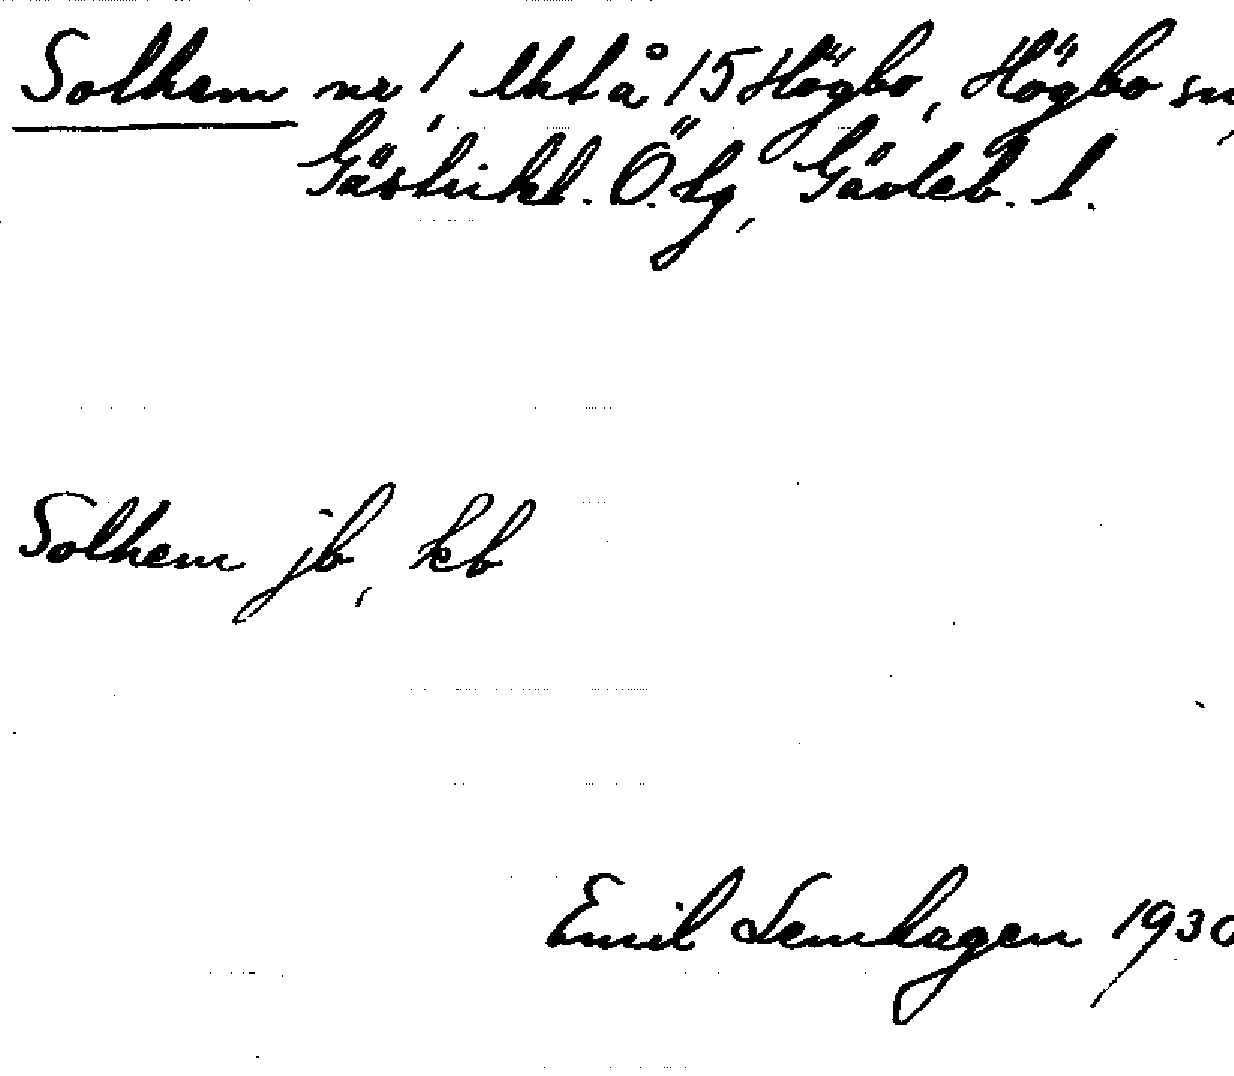 Solhem nr 1, lht å 15 Högbo, Högbo sn,
Gästrikl. Ö. tg, Gävleb. l.
Solhem jb, kb
Emil Lemhagen 1930